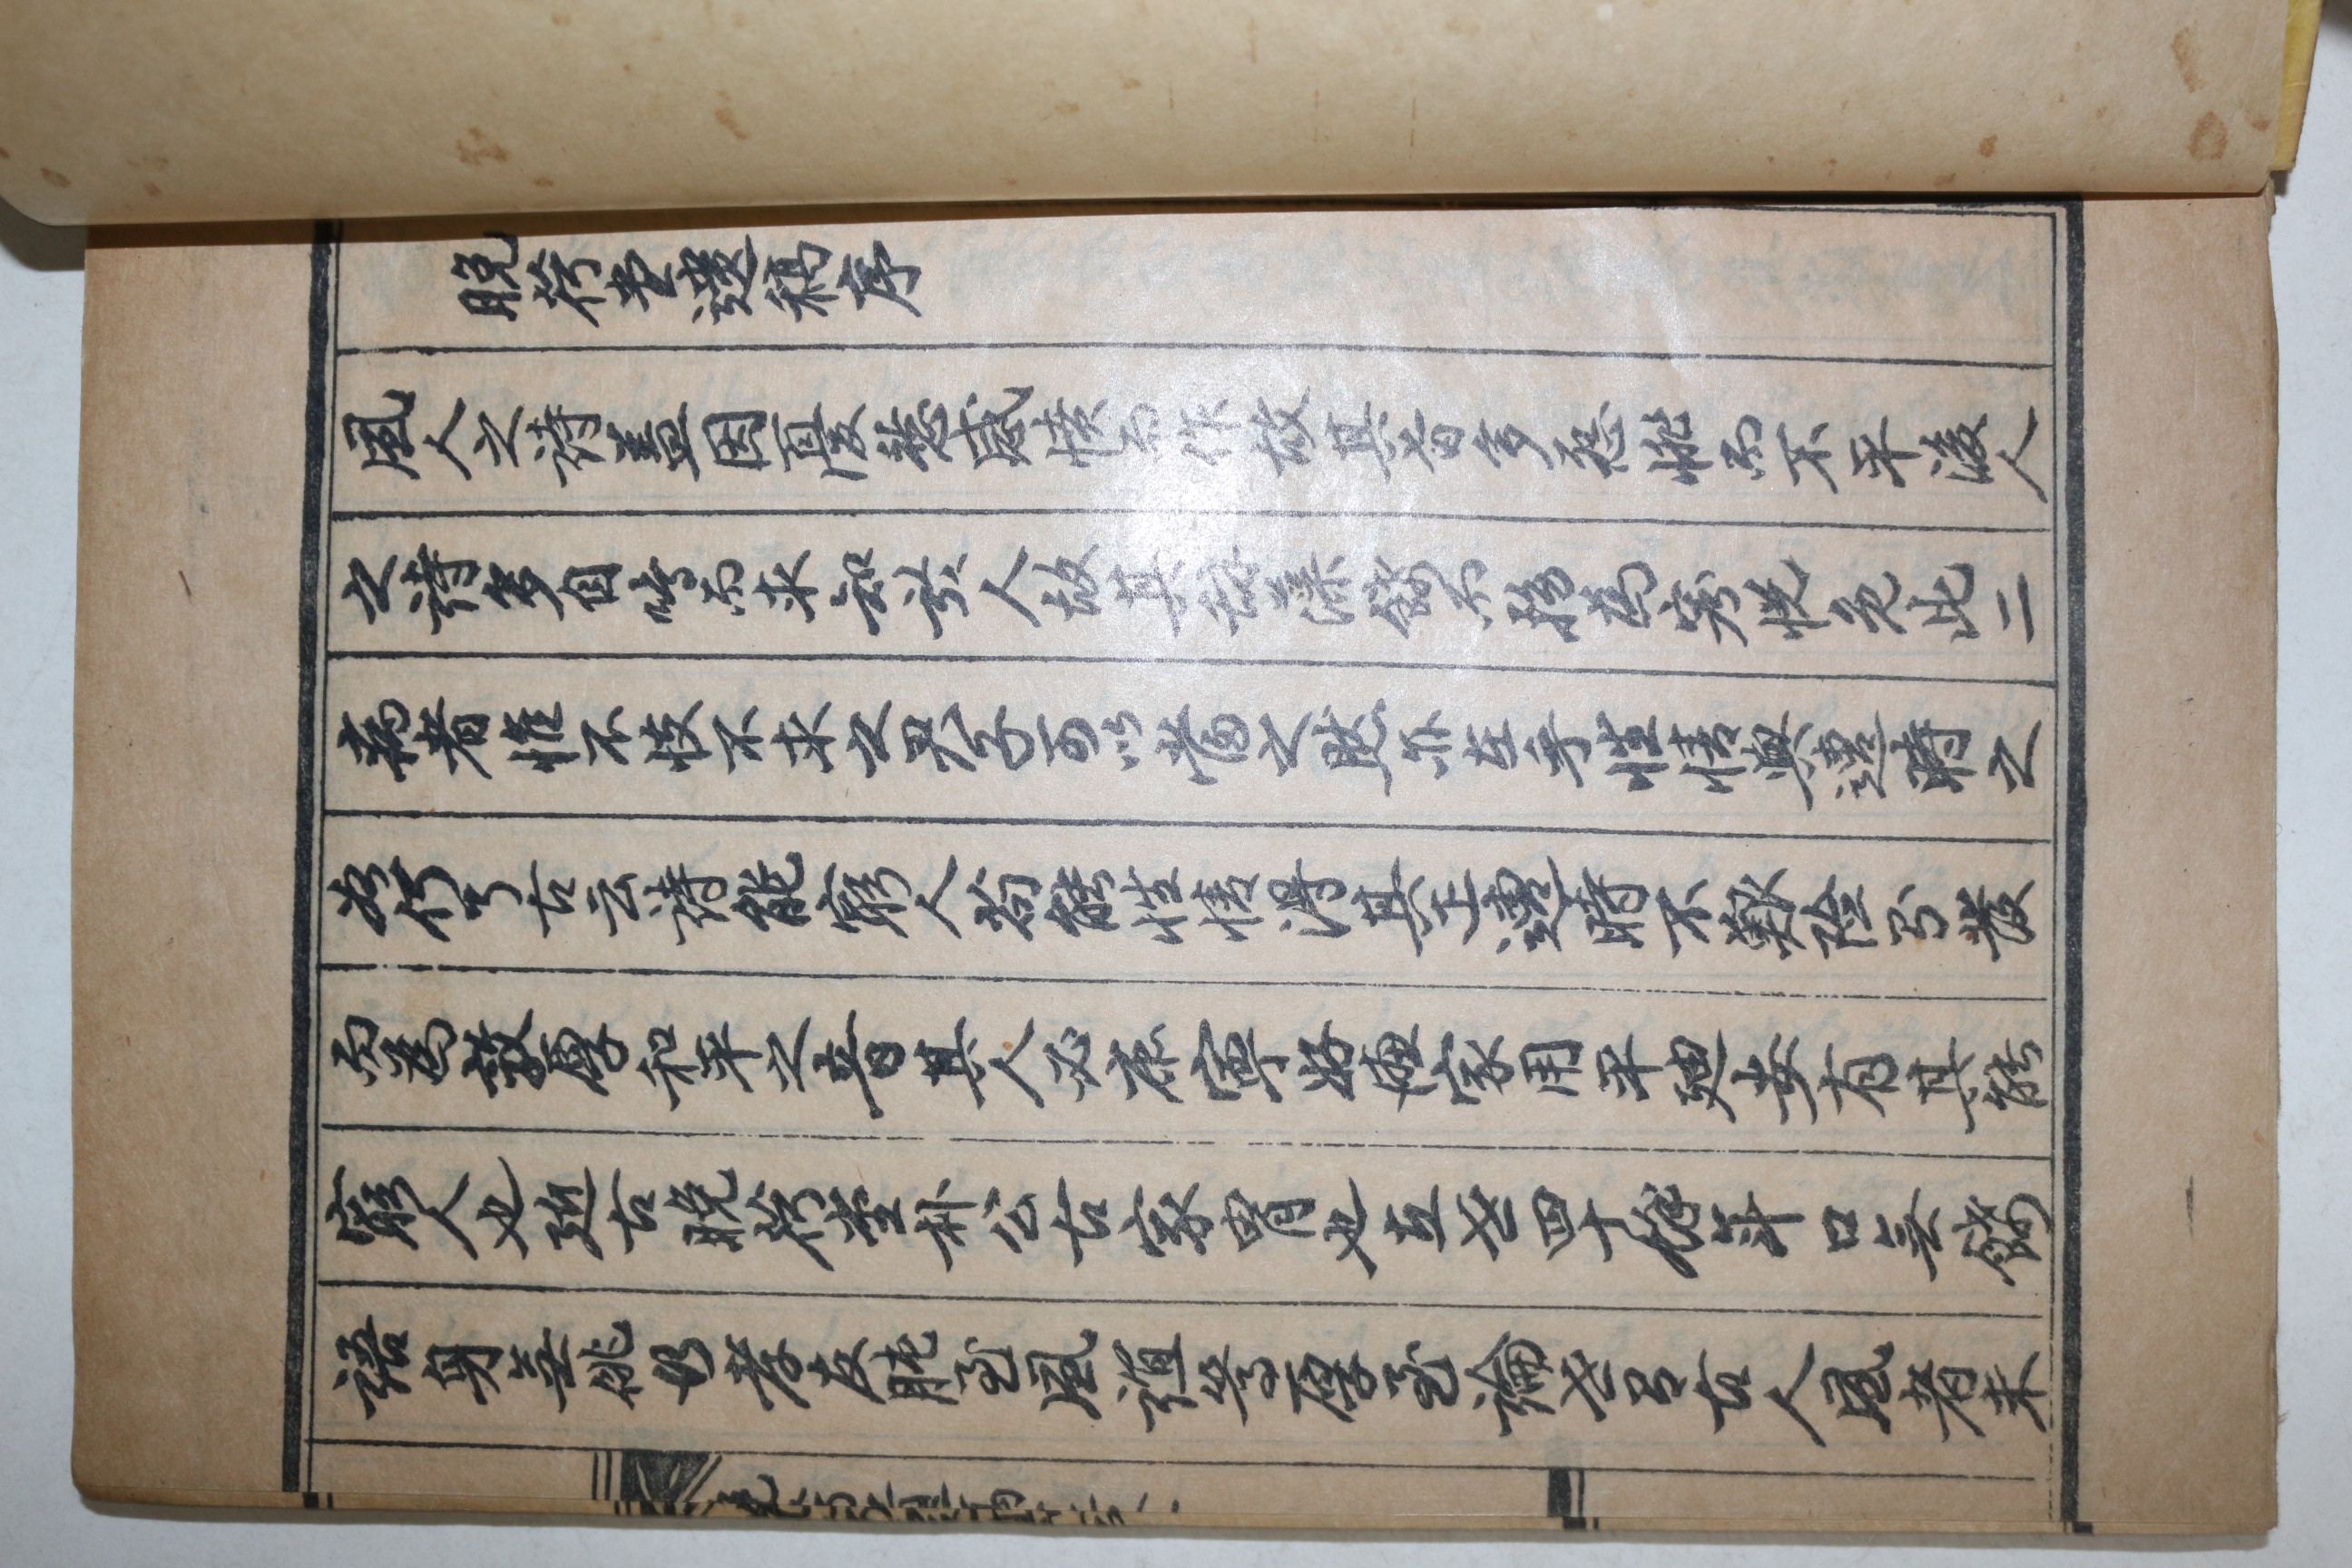 晚荷堂遺稿序
風人之詩蓋因憂愁感憤而作故其音多怨悱而不平後人
之詩多自鳴而求知於人故其辭藻餙而務為容悅免此二
病者惟不忮不求之君子可以當之然亦在乎性情與遭時之
如何耳古云詩能窮人苟能性情得其正遭時不艱險則發
而為敦厚和平之音其人必康寧好德家用平廸安有其能
窮人也近古晚荷堂朴公古家冑也立世四十餘年口無餙
語身無佻行孝友肫至風誼篤厚至論世有古人風者未